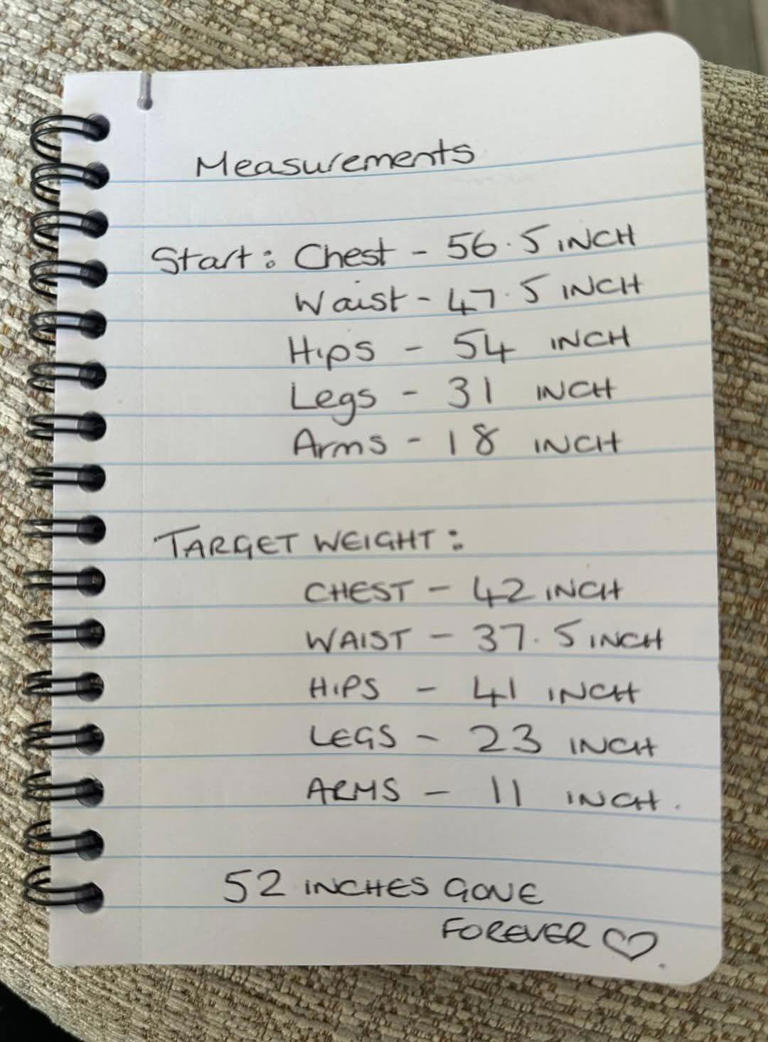 Measurements
Start: Chest - 56.5 INCH
Waist - 47.5 INCH
Hips - 54 INCH
Legs - 31 INCH
Arms - 18 INCH
TARGET WEIGHT:
CHEST - 42 INCH
WAIST - 37.5 INCH
HIPS - 41 INCH
LEGS - 23 INCH
ARMS - 11 INCH.
52 INCHES GONE
FOREVER ♡.